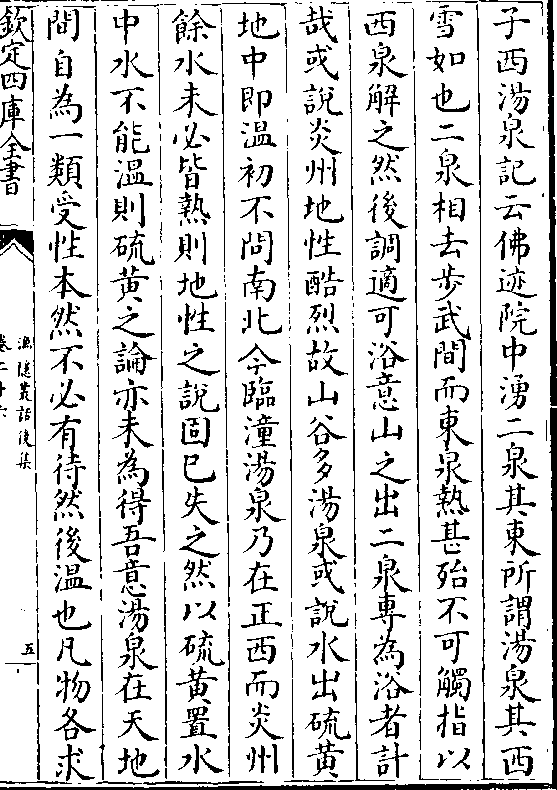 子西湯泉記云佛迹院中湧二泉其東所謂湯泉其西
雪如也二泉相去步武間而東泉熱甚殆不可觸指以
西泉解之然後調適可浴意山之出二泉專為浴者計
哉或說炎州地性酷烈故山谷多湯泉或說水出硫黄
地中即温初不問南北今臨潼湯泉乃在正西而炎州
餘水未必皆熱則地性之說固已失之然以硫黄置水
中水不能温則硫黄之論亦未為得吾意湯泉在天地
間自為一類受性本然不必有待然後温也凡物各求
欽定四庫全書
漁隠叢話後集
卷二十六
五